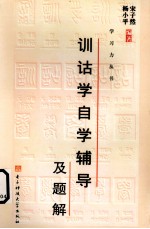 宋子然
杨小平
编著
学习力丛书
训诂学自学辅导
及题解
电子科技大学出版社